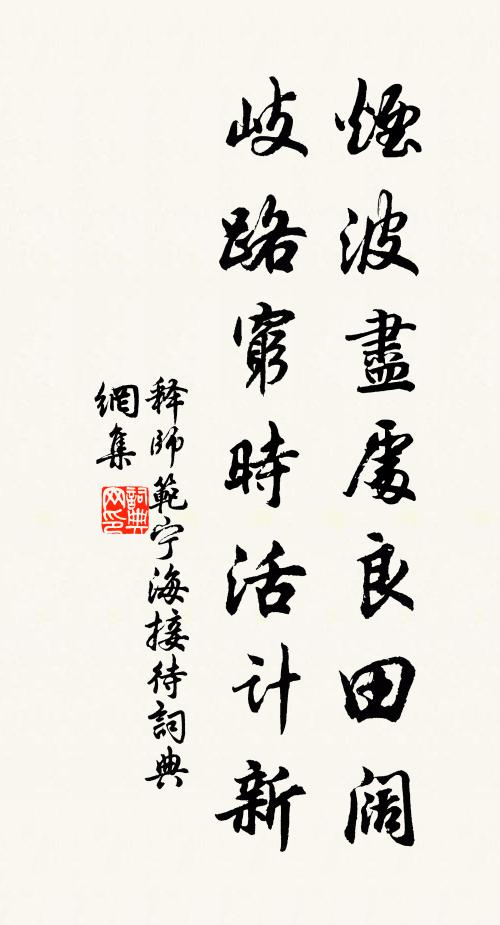 煙波盡處良田阔
岐路窮時活計新
释師範宁海接待詞典
網集
詞典
网印